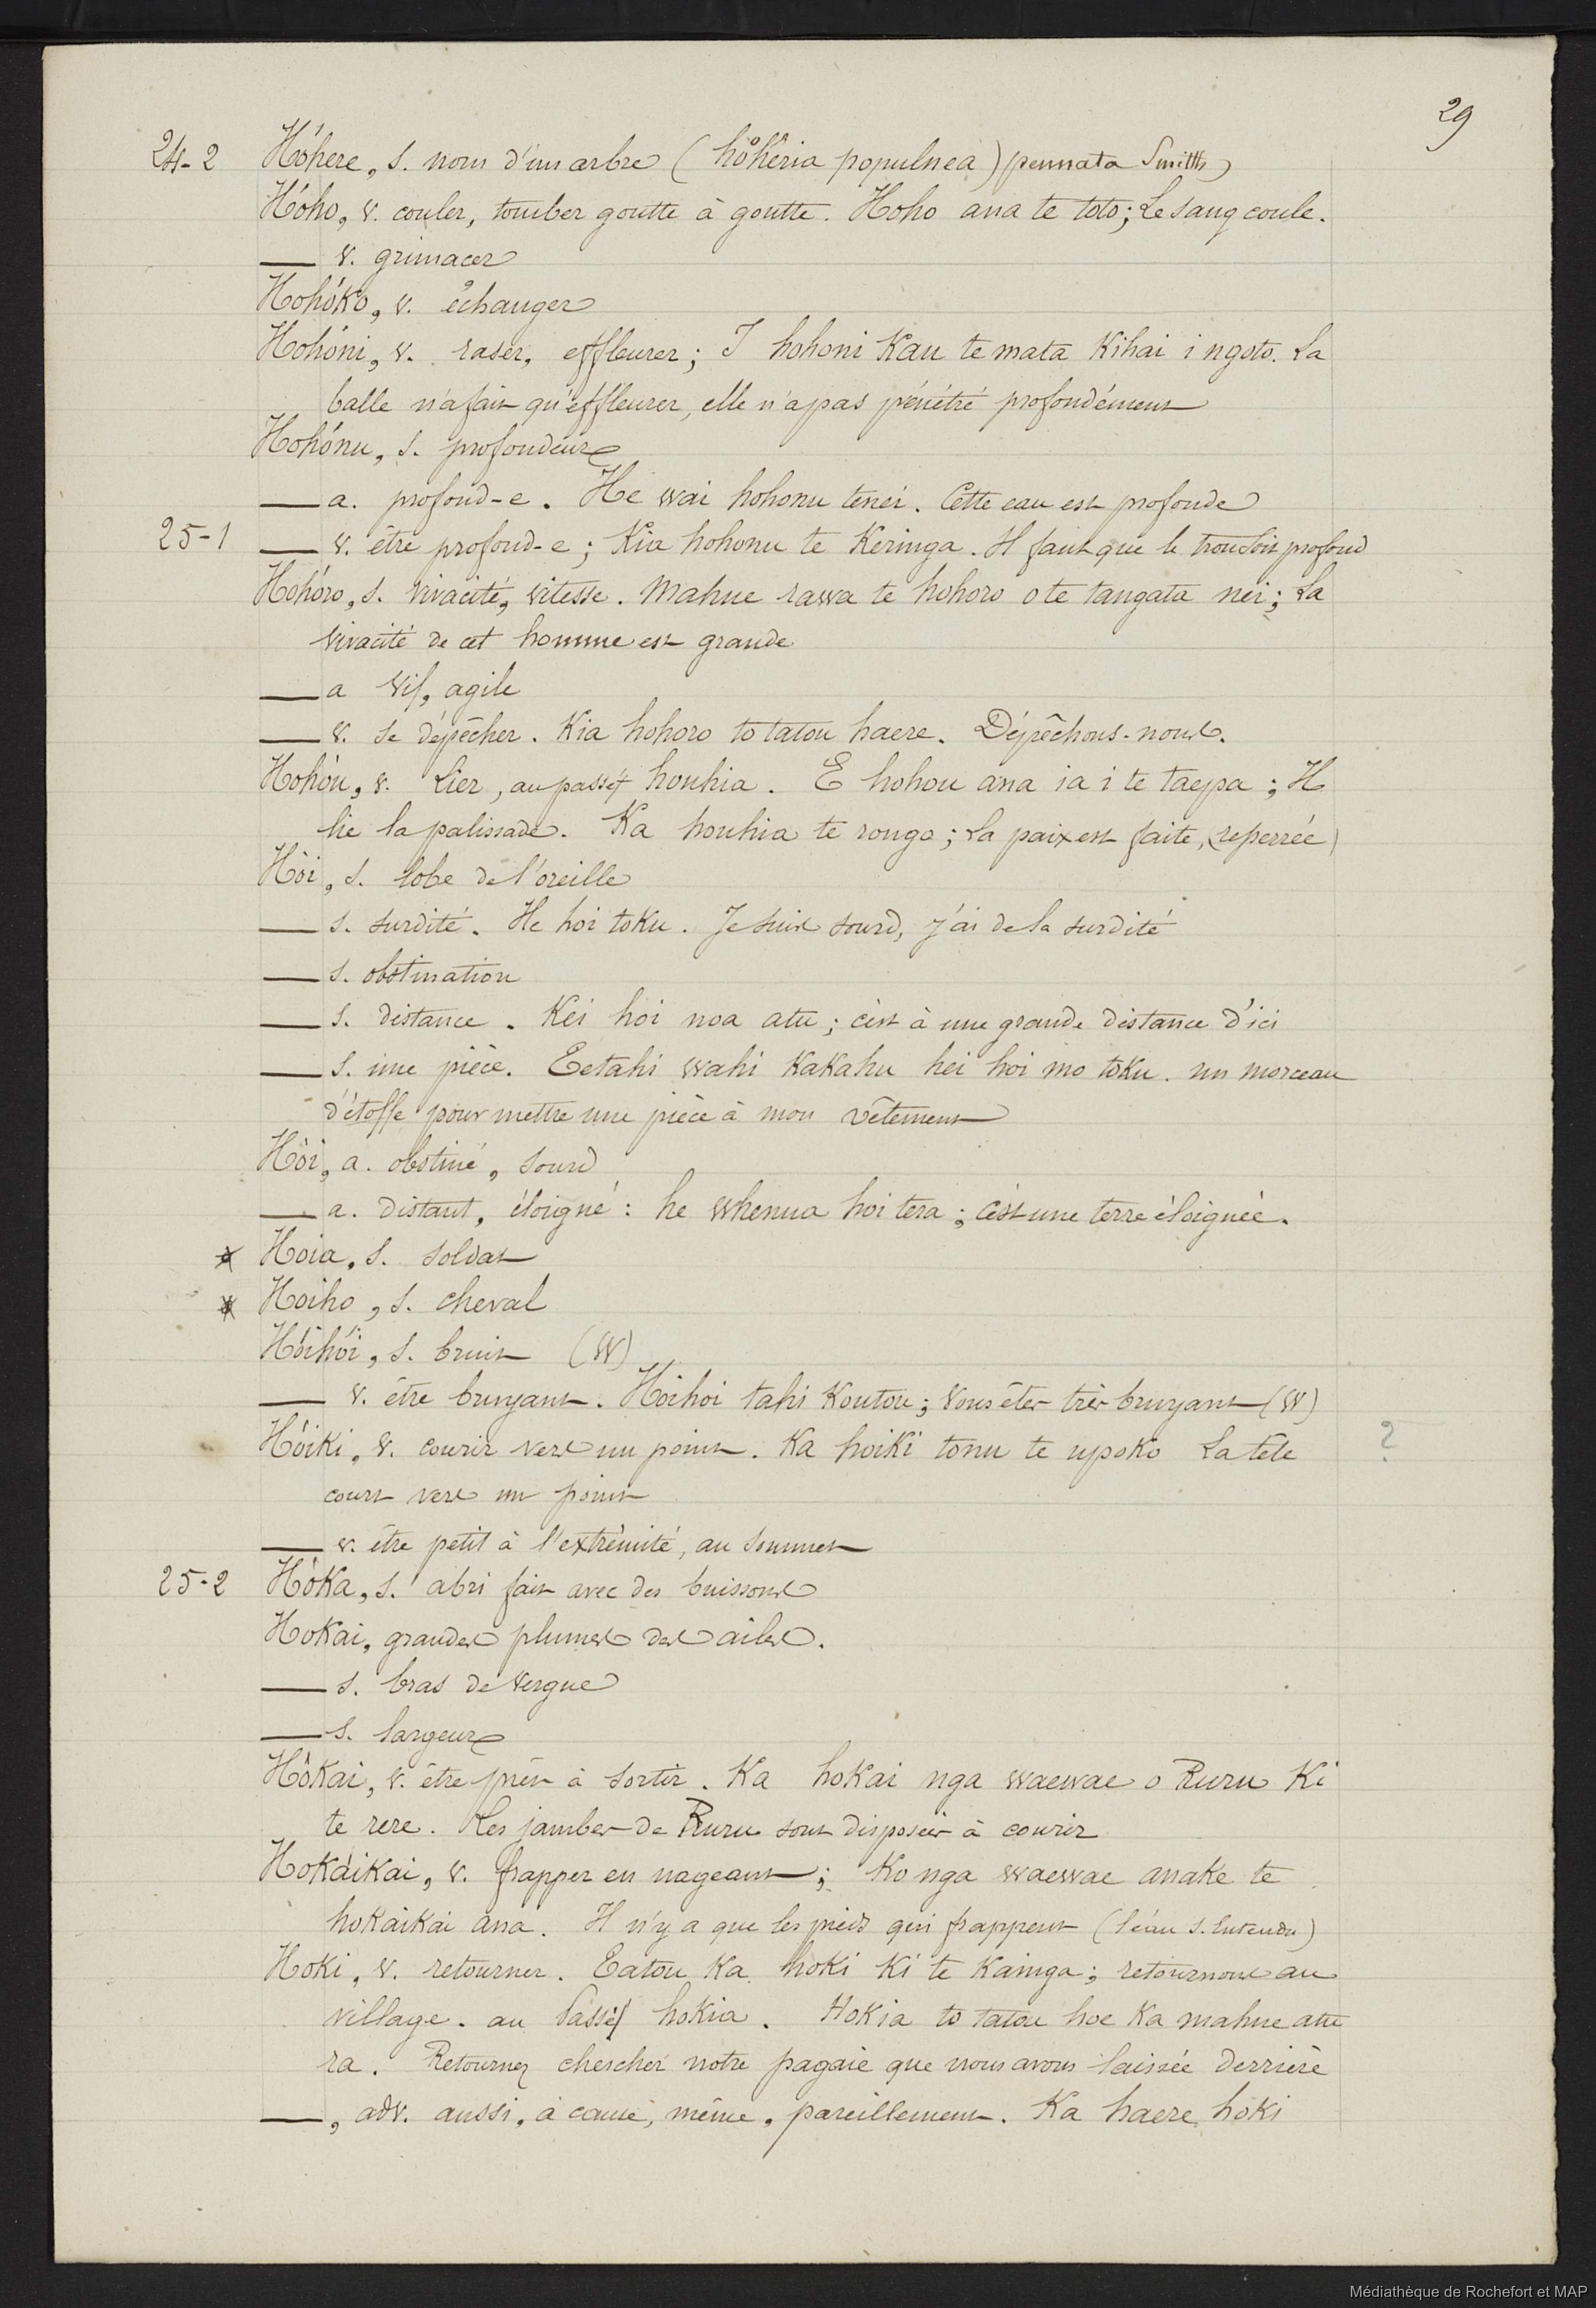 29
24-2 Hóhere, s. nom d'un arbre (hohéria populnea) (pennata Smitth)
Hóho, v. couler, tomber goutte à goutte. Hoho ana te toto; Le sang coule.
— v. grimacer
Hohóko, v. échanger
Hohóni, v. raser, effleurer; I hohoni Kau te mata Kihai i ngoto. La
balle n'a fait qu'effleurer, elle n'a pas pénétré profondément
Hohónu, s. profondeur
— a. profond-e. He wai hohonu tenei. Cette eau est profonde
25-1 — v. être profond-e; Kia hohonu te Keringa. Il faut que le trou soit profond
Hohóro, s. vivacité, vitesse. Mahue rawa te hohoro o te tangata nei; La
vivacité de cet homme est grande
— a vif, agile
— v. se dépêcher. Kia hohoro to tatou haere. Dépêchons-nous.
Hohóu, v. Lier, au passif houhia. E hohou ana ia i te taepa; Il
lie la palissade. Ka houhia te rongo; La paix est faite, (resserrée)
Hói, s. lobe de l'oreille
— s. surdité. He hoi toKu. Je suis sourd, j'ai de la surdité
— s. obstination
— s. distance. Kei hoi noa atu; c'est à une grande distance d'ici
— s. une pièce. Eetahi wahi KaKahu hei hoi mo toKu. un morceau
d'étoffe pour mettre une pièce à mon vêtement
Hói, a. obstiné, sourd
— a. distant, éloigné: he whenua hoi tera; c'est une terre éloignée.
* Hoia, s. soldat
* Hoiho, s. cheval
Hóihói, s. bruit (W)
— v. être bruyant. Hoihoi tahi Koutou; Vous êtes très bruyant (W)
Hóiki, v. courir vers un point. Ka hoiKi tonu te upoKo La tête ?
court vers un point
— v. être petit à l'extrémité, au sommet
25-2 HóKa, s. abri fait avec des buissons
HoKai, grandes plumes des ailes.
— s. bras de vergue
— s. largeur
HôKai, v. être prêt à sortir. Ka hoKai nga waewae o Ruru Ki
te rere. Les jambes de Ruru sont disposées à courir
HoKáiKai, v. frapper en nageant; Ko nga waewae anaKe te
hoKaiKai ana. Il n'y a que les pieds qui frappent (l'eau s. entendu)
HoKi, v. retourner. Eatou Ka hoKi Ki te Kainga; retournons au
village. au Passif hoKia. HoKia to tatou hoe Ka mahue atu
ra. Retournez chercher notre pagaie que nous avons laissée derrière
—, adv. aussi, à cause, même, pareillement. Ka haere hoKi
Médiathèque de Rochefort et MAP